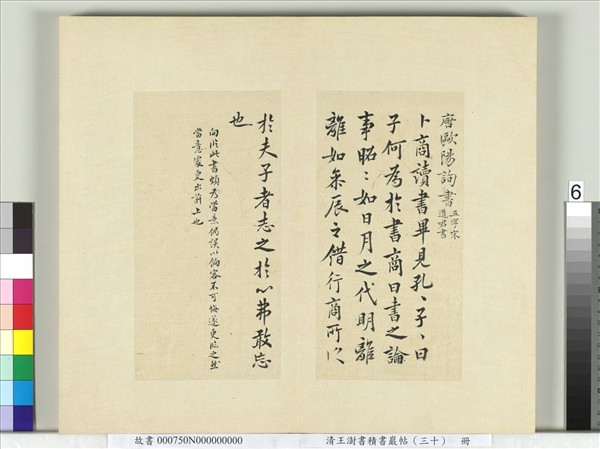 唐歐陽詢書 五字宋道君書
卜商讀書畢見孔、子、、曰
子何為於書商曰書之論
事昭〻如日月之代明離
離如參辰之錯行商所以
於夫子者志之於心弗敢忘
也
向臨此書頗為當意偶誤以餉客不可悔遂更臨之
當意家更出前上也
6
故書 000750N000000000
清王澍書積書巖帖（三十） 冊